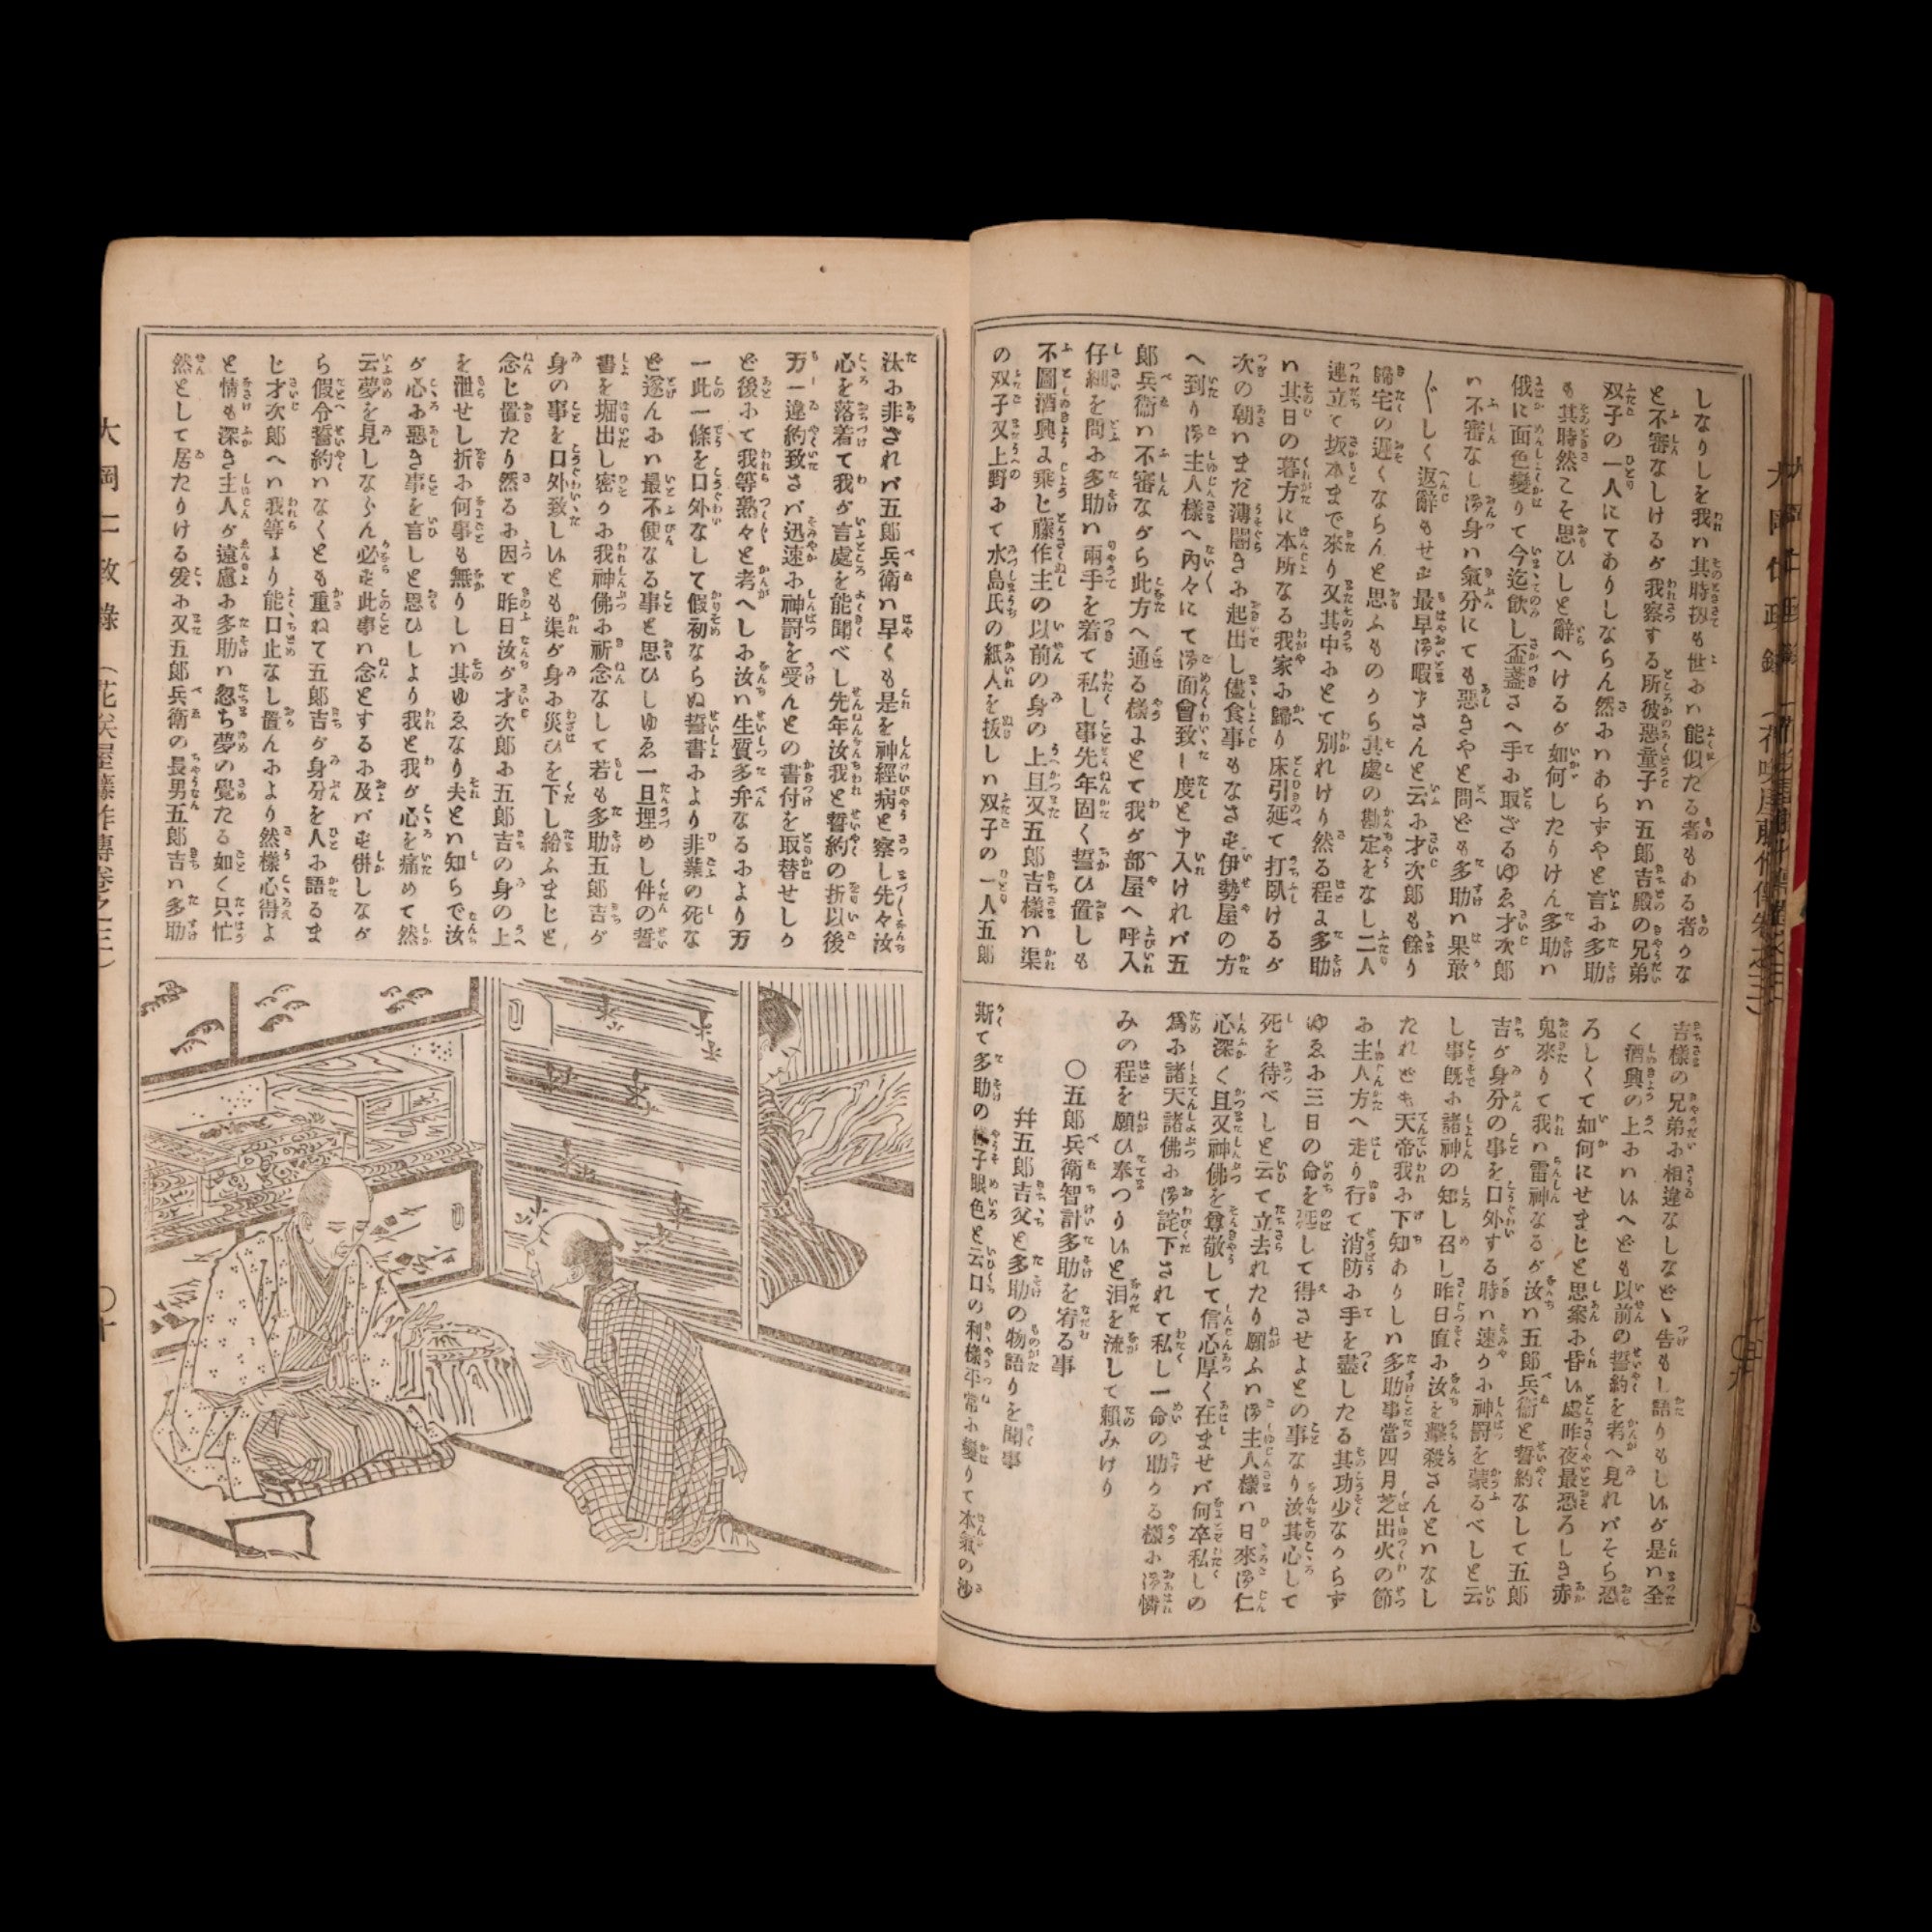 しなりしを我ハ其時扨も世ふハ能似たる者もある者うな
と不審なしけるが我察する所彼惡童子ハ五郎吉殿の兄弟
双子の一人にてありしならん然ふハあらずやと言ふ多助
も其時然こそ思ひしと辭へけるが如何したりけん多助ハ
俄に面色變りて今迄飮し盃盞さへ手ふ取ざるゆゑ才次郎
ハ不審なし御身ハ氣分にても惡きやと問ども多助ハ果敢
〲しく返辭もせず最早御暇申さんと云ふ才次郎も餘り
歸宅の遲くならんと思ふものから其處の勘定をなし二人
連立て坂本まで來り又其中ふとて別れけり然る程よ多助
ハ其日の暮方に本所なる我家ふ歸り床引延て打臥けるが
次の朝ハまだ薄闇きふ起出し儘食事もなさず伊勢屋の方
へ到り御主人樣へ内々にて御面會致し度と申入けれバ五
郎兵衞ハ不審ながら此方へ通る樣よとて我が部屋へ呼入
仔細を問ふ多助ハ兩手を着て私し事先年固く誓ひ置しも
不圖酒興よ乘じ藤作主の以前の身の上且又五郎吉樣ハ渠
の双子又上野ふて水島氏の紙人を抜しハ双子の一人五郎
吉樣の兄弟ふ相違なしなど〻告もし語りもしハが是ハ全
く酒興の上ふハいへども以前の誓約を考へ見れバそら恐
ろしくて如何にせまじと思案ふ昏い處昨夜最恐ろしき赤
鬼來りて我ハ雷神なるが汝ハ五郎兵衞と誓約なして五郎
吉が身分の事を口外する時ハ速うふ神罸を蒙るべしと云
し事既ふ諸神の知し召し昨日直ふ汝を擊殺さんとハなし
たれども天帝我ふ下知ありしハ多助事當四月芝出火の節
ふ主人方へ走り行て消防ふ手を盡したる其功少なからず
ゆゑふ三日の命を延して得させよとの事なり汝其心して
死を待べしと云て立去れたり願ふハ御主人樣ハ日來御仁
心深く且又神佛を尊敬して信心厚く在ませバ何卒私しの
爲ふ諸天諸佛ふ御詫下されて私し一命の助うる樣ふ御憐
みの程を願ひ奉つりハと泪を流して賴みけり
〇五郎兵衞智計多助を宥る事
幷五郎吉父と多助の物語りを聞事
斯て多助の樣子眼色と云口の利樣平常ふ變りて本氣の沙
汰ふ非ざれバ五郎兵衞ハ早くも是を神經病と察し先々汝
心を落着て我が言處を能聞べし先年汝我と誓約の折以後
万一違約致さバ迅速ふ神罸を受んとの書付を取替せしう
ど後ふて我等熟々と考へしふ汝ハ生質多弁なるふより万
一此一條を口外なして假初ならぬ誓書ふより非業の死な
ど遂んふハ最不便なる事と思ひしゆゑ一旦埋めし件の誓
書を堀出し密うふ我神佛ふ祈念なして若も多助五郎吉が
身の事を口外致しハとも渠が身ふ災ひを下し給ふまじと
念じ置たり然るふ因て昨日汝が才次郎ふ五郎吉の身の上
を泄せし折ふ何事も無りしハ其ゆゑなり夫とハ知らで汝
が心ふ惡き事を言しと思ひしより我と我が心を痛めて然
云夢を見しならん必ず此事ハ念とするふ及バず併しなが
ら假令誓約ハなくとも重ねて五郎吉が身分を人ふ語るま
じ才次郎へハ我等より能口止なし置んふより然樣心得よ
と情も深き主人が遠慮ふ多助ハ忽ち夢の覺たる如く只忙
然として居たりける爰ふ又五郎兵衞の長男五郎吉ハ多助
大岡仁政錄 (花咲屋藤作傳卷之三) 〇十